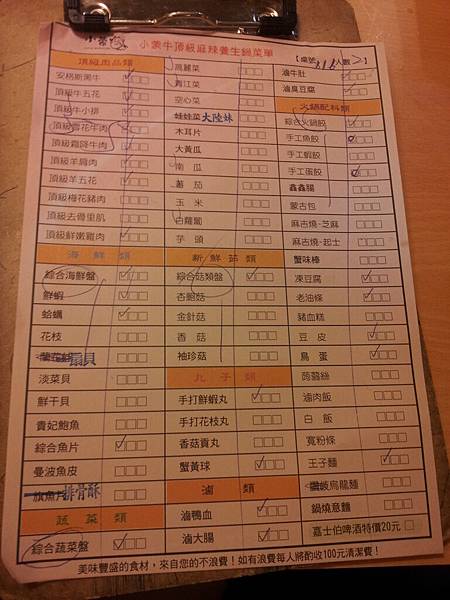 小蒙牛頂級麻辣養生鍋菜單
【桌號 人數 】
頂級肉品類
安格斯黑牛
頂級牛五花
頂級牛小排
頂級雪花牛肉
頂級霜降牛肉
頂級羊肩肉
頂級羊五花
頂級梅花豬肉
頂級去骨里肌
頂級鮮嫩雞肉
海鮮類
綜合海鮮盤
鮮蝦
蛤蠣
花枝
扇貝
淡菜貝
鮮干貝
貴妃鮑魚
綜合魚片
曼波魚皮
旗魚片 排骨酥
蔬菜類
綜合蔬菜盤
高麗菜
青江菜
空心菜
娃娃菜 大陸妹
木耳片
大黃瓜
南瓜
蕃茄
玉米
白蘿蔔
芋頭
新鮮菇類
綜合菇類盤
杏鮑菇
金針菇
香菇
袖珍菇
丸子類
手打鮮蝦丸
手打花枝丸
香菇貢丸
蟹黃球
滷類
滷鴨血
滷大腸
滷牛肚
滷臭豆腐
火鍋配料類
綜合火鍋餃
手工魚餃
手工蝦餃
手工蛋餃
鑫鑫腸
蒙古包
麻吉燒-芝麻
麻吉燒-起士
蟹味棒
凍豆腐
老油條
豬血糕
豆皮
鳥蛋
蒟蒻絲
滷肉飯
白飯
寬粉條
王子麵
烏龍麵
鍋燒意麵
嘉士伯啤酒特價20元
美味豐盛的食材，來自您的不浪費！如有浪費每人將酌收100元清潔費！